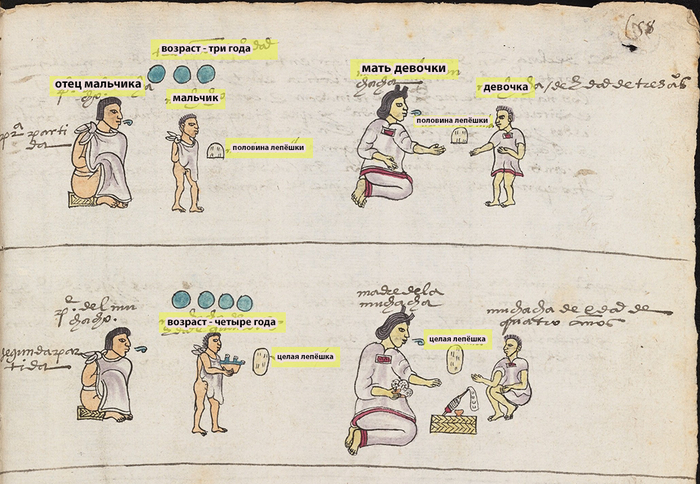 возраст - три года
отец мальчика
мальчик
половина лепёшки
parti
da
мать девочки
девочка
de edad de tres
половина лепёшки
del mu
chacho.
возраст - четыре года
segunda par
tida
целая лепёшка
madre de la
muchacha
muchacha de edad de
quatro años
целая лепёшка